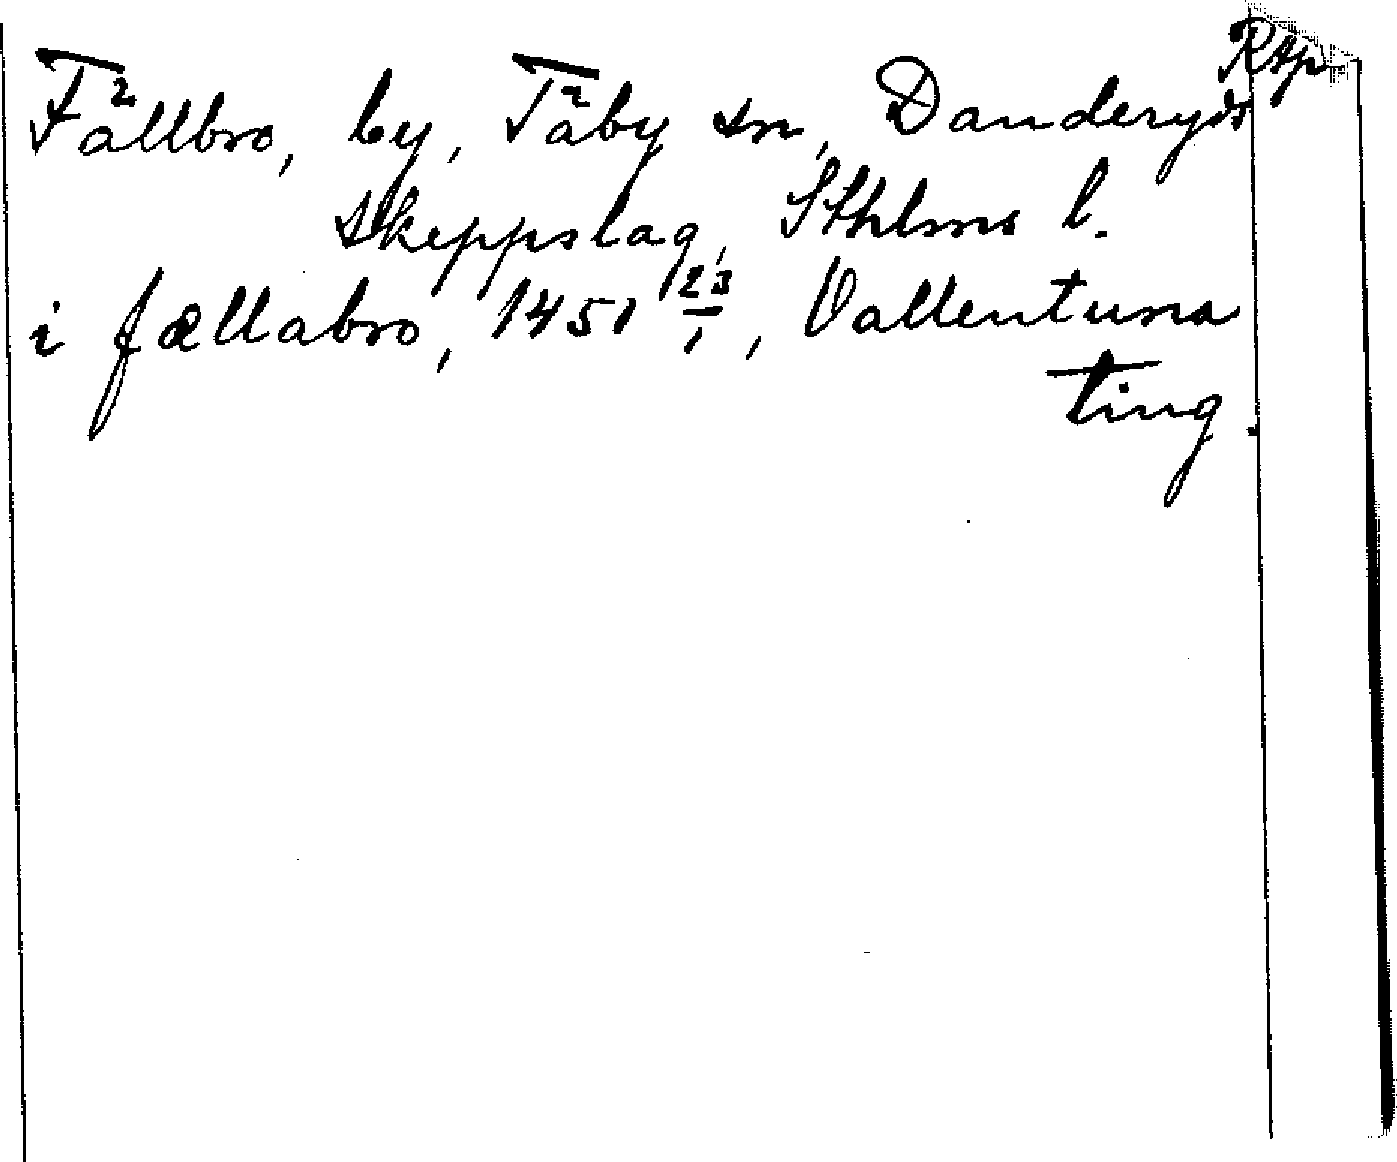 Rap
Fällbro, by, Täby sn, Danderyds
skeppslag, Sthlms l.
i fællabro, 1451 23/1, Vallentuna
ting.